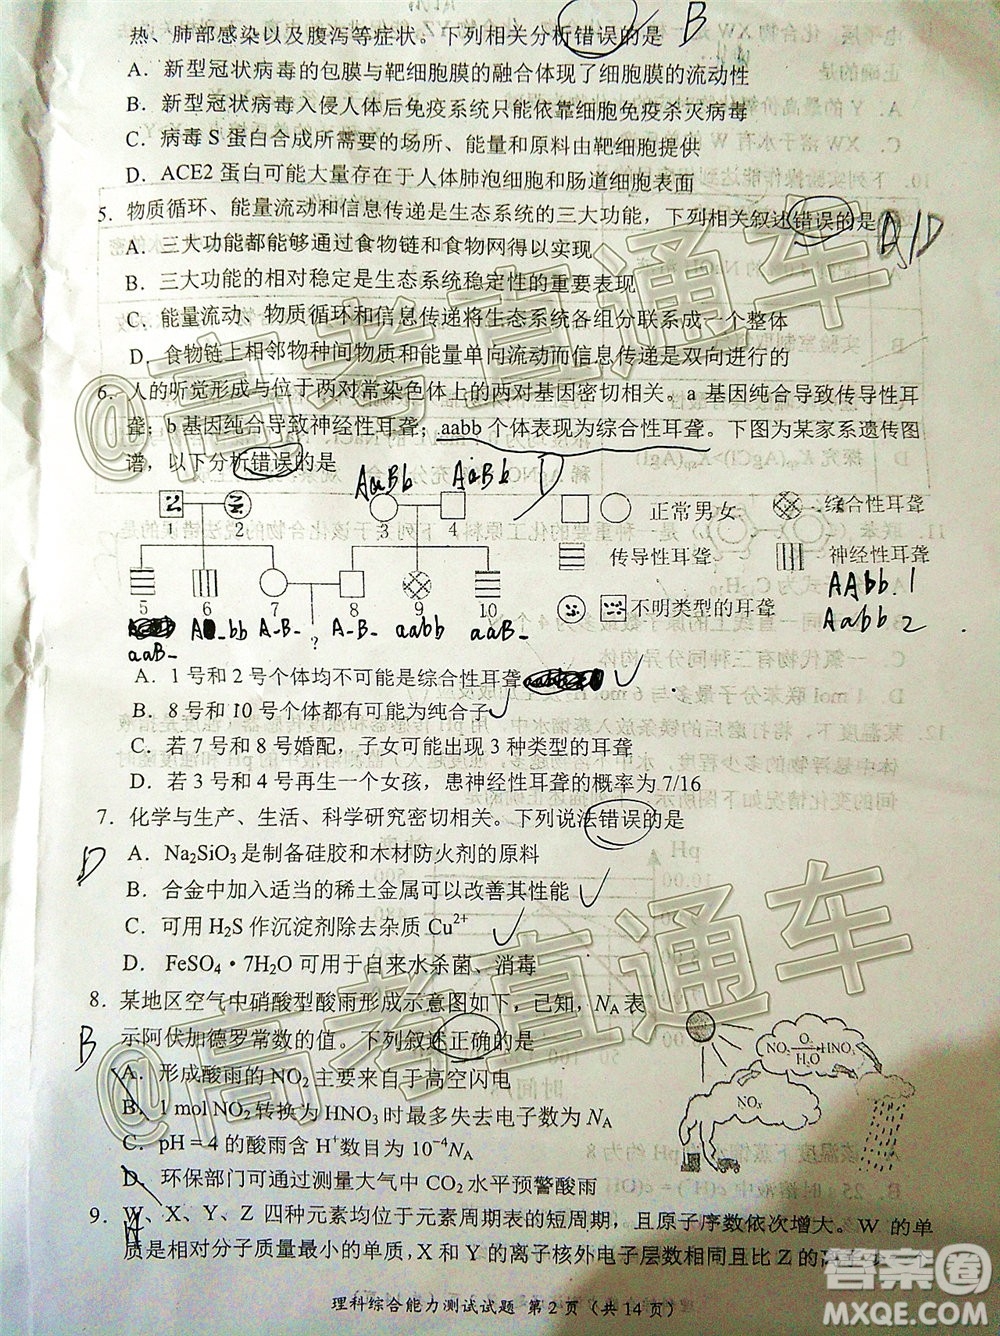 热、肺部感染以及腹泻等症状。下列相关分析错误的是 B
A．新型冠状病毒的包膜与靶细胞膜的融合体现了细胞膜的流动性
B．新型冠状病毒入侵人体后免疫系统只能依靠细胞免疫杀灭病毒
C．病毒 S 蛋白合成所需要的场所、能量和原料由靶细胞提供
D．ACE2 蛋白可能大量存在于人体肺泡细胞和肠道细胞表面
5．物质循环、能量流动和信息传递是生态系统的三大功能，下列相关叙述错误的是
A．三大功能都能够通过食物链和食物网得以实现
B．三大功能的相对稳定是生态系统稳定性的重要表现
C．能量流动、物质循环和信息传递将生态系统各组分联系成一个整体
D．食物链上相邻物种间物质和能量单向流动而信息传递是双向进行的
6．人的听觉形成与位于两对常染色体上的两对基因密切相关。a 基因纯合导致传导性耳
聋；b 基因纯合导致神经性耳聋；aabb 个体表现为综合性耳聋。下图为某家系遗传图
谱，以下分析错误的是 D
AaBb AaBb
1 2 3 4
正常男女 综合性耳聋
传导性耳聋 神经性耳聋
不明类型的耳聋
5 6 7 8 9 10
?
A_bb A-B- A-B- aabb aaB_
aaB_
AAbb 1
Aabb 2
A．1 号和 2 号个体均不可能是综合性耳聋
B．8 号和 10 号个体都有可能为纯合子
C．若 7 号和 8 号婚配，子女可能出现 3 种类型的耳聋
D．若 3 号和 4 号再生一个女孩，患神经性耳聋的概率为 7/16
7．化学与生产、生活、科学研究密切相关。下列说法错误的是
D
A．Na₂SiO₃是制备硅胶和木材防火剂的原料
B．合金中加入适当的稀土金属可以改善其性能
C．可用 H₂S 作沉淀剂除去杂质 Cu²⁺
D．FeSO₄・7H₂O 可用于自来水杀菌、消毒
8．某地区空气中硝酸型酸雨形成示意图如下，已知，Nₐ 表
示阿伏加德罗常数的值。下列叙述正确的是
B
A．形成酸雨的 NO₂主要来自于高空闪电
B．1 mol NO₂转换为 HNO₃时最多失去电子数为 Nₐ
C．pH = 4 的酸雨含 H⁺数目为 10⁻⁴Nₐ
D．环保部门可通过测量大气中 CO₂水平预警酸雨
NO₂ O₂ H₂O HNO₃
NOₓ
9．W、X、Y、Z 四种元素均位于元素周期表的短周期，且原子序数依次增大。W 的单
质是相对分子质量最小的单质，X 和 Y 的离子核外电子层数相同且比 Z 的
理科综合能力测试试题 第 2 页（共 14 页）
@高考直通车
@高考直通车
答案圈
MXQE.COM